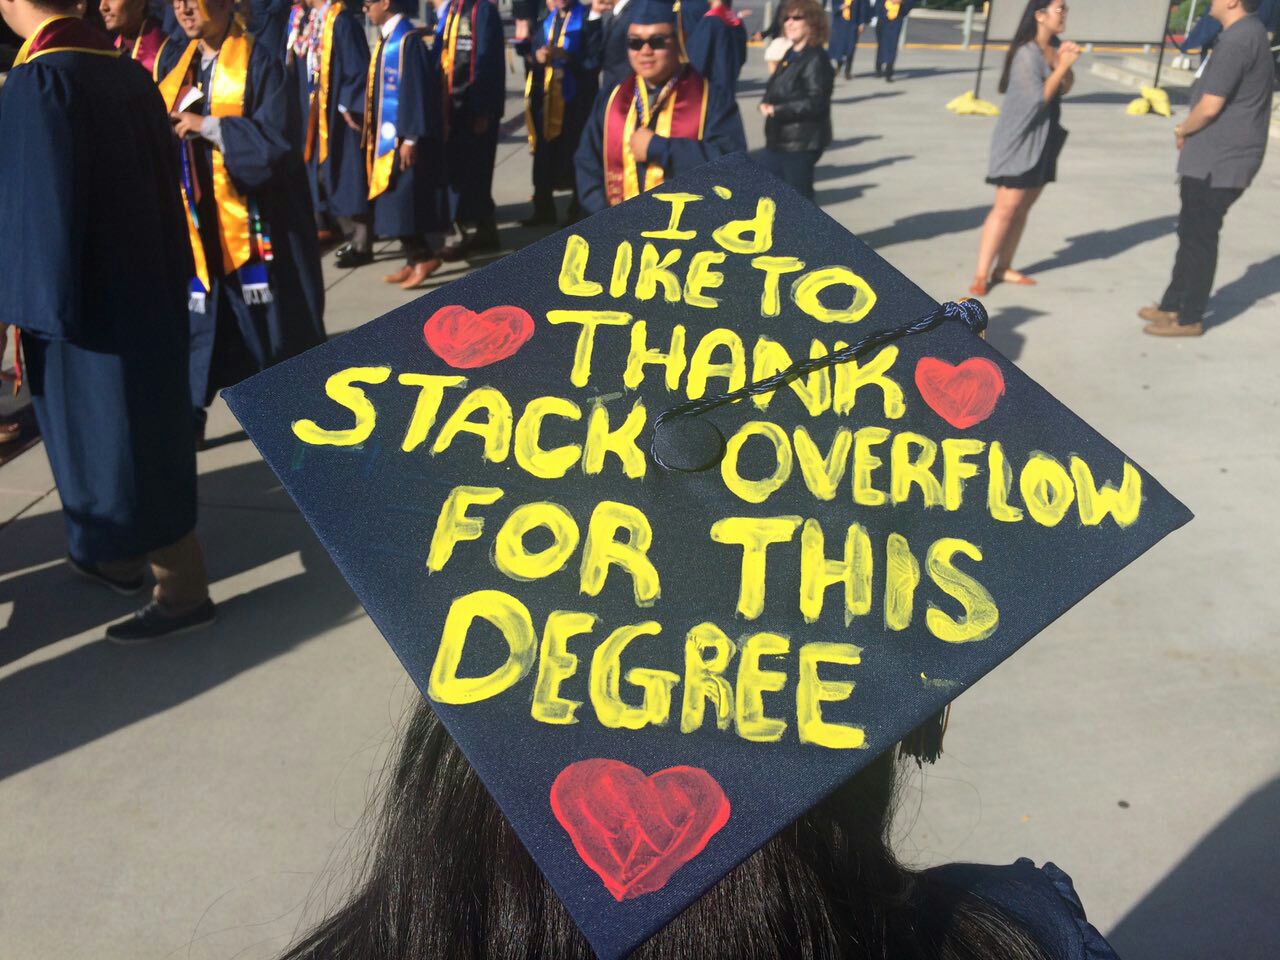 I'd
LIKE TO
THANK
STACK OVERFLOW
FOR THIS
DEGREE